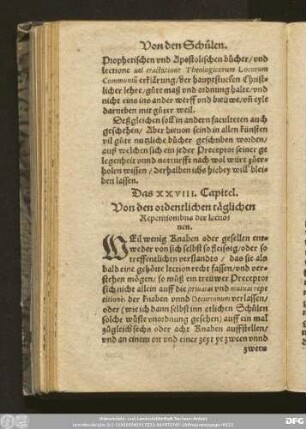 Von den Schülen.
Prophetischen vnd Apostolischen bücher/ vnd
lectione uel tractatione Theologicorum Locorum
Communiū erklärung/ der hauptstucken Christ-
licher lehre/ gůte maß vnd ordnung halte/ vnd
nicht eins ins ander werff vnd
darneben mit gůter weil.
Deßgleichen soll in andern faculteten auch
geschehen/ Aber hieuon seind in allen künsten
vil gůte nutzliche bücher geschriben worden/
auß welchen sich ein jeder Preceptor seiner ge
legenheit vnnd notturfft nach wol würt zuer-
holen wissen/ derhalben ichs hiebey will blei-
ben lassen.
Das XXVIII. Capitel.
Von den ordentlichen täglichen
Repetitionibus der lectio
nen.
WEil wenig Knaben oder gesellen ent-
weder von sich selbst so fleissig/ oder so
treffentlichs verstandes/ das sie als
bald eine gehörte lection recht fassen/ vnd ver-
stehen mögen/ so můß ein trewer Preceptor
sich nicht allein auff die priuatas vnd mutuas repe
titiones der knaben vnnd Decurionum verlassen/
oder (wie ich dann selbst inn etlichen Schůlen
solche wüste vnordnung gesehen) auff ein mal
zůgleich sechs oder acht Knaben auffstellen/
vnd an einem ort vnd einer zeyt je zween vnnd
zween